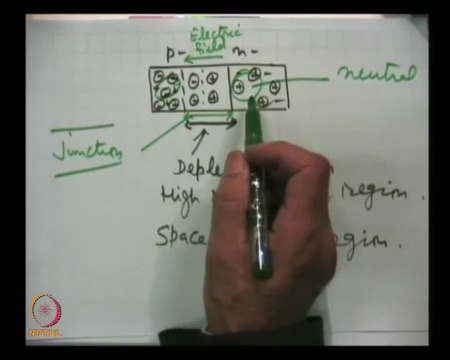 Electric
field
p-
n-
neutral
Junction
High region.
Space
NPTEL